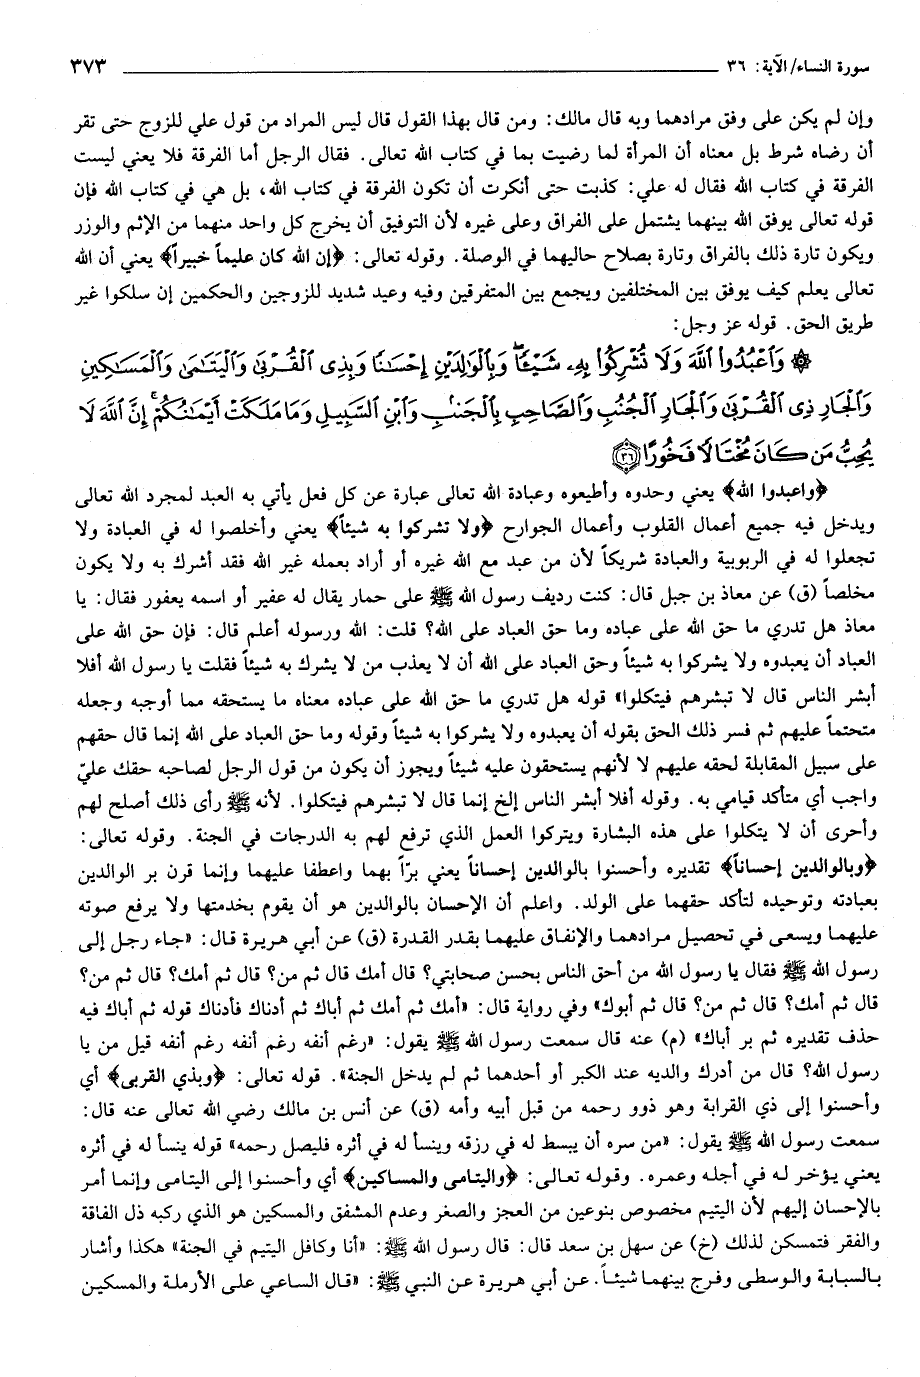 سورة النساء/ الآية: ٣٦ ٣٧٣
وإن لم يكن على وفق مرادهما وبه قال مالك: ومن قال بهذا القول قال ليس المراد من قول علي للزوج حتى تقر
أن رضاه شرط بل معناه أن المرأة لما رضيت بما في كتاب الله تعالى. فقال الرجل أما الفرقة فلا يعني ليست
الفرقة في كتاب الله فقال له علي: كذبت حتى أنكرت أن تكون الفرقة في كتاب الله، بل هي في كتاب الله فإن
قوله تعالى يوفق الله بينهما يشتمل على الفراق وعلى غيره لأن التوفيق أن يخرج كل واحد منهما من الإثم والوزر
ويكون تارة ذلك بالفراق وتارة بصلاح حاليهما في الوصلة. وقوله تعالى: ﴿إن الله كان عليماً خبيراً﴾ يعني أن الله
تعالى يعلم كيف يوفق بين المختلفين ويجمع بين المتفرقين وفيه وعيد شديد للزوجين والحكمين إن سلكوا غير
طريق الحق. قوله عز وجل:
۞ وَٱعۡبُدُواْ ٱللَّهَ وَلَا تُشۡرِكُواْ بِهِۦ شَيۡـٔٗاۖ وَبِٱلۡوَٰلِدَيۡنِ إِحۡسَٰنٗا وَبِذِي ٱلۡقُرۡبَىٰ وَٱلۡيَتَٰمَىٰ وَٱلۡمَسَٰكِينِ
وَٱلۡجَارِ ذِي ٱلۡقُرۡبَىٰ وَٱلۡجَارِ ٱلۡجُنُبِ وَٱلصَّاحِبِ بِٱلۡجَنۢبِ وَٱبۡنِ ٱلسَّبِيلِ وَمَا مَلَكَتۡ أَيۡمَٰنُكُمۡۗ إِنَّ ٱللَّهَ لَا
يُحِبُّ مَن كَانَ مُخۡتَالٗا فَخُورًا ٣٦
﴿واعبدوا الله﴾ يعني وحدوه وأطيعوه وعبادة الله تعالى عبارة عن كل فعل يأتي به العبد لمجرد الله تعالى
ويدخل فيه جميع أعمال القلوب وأعمال الجوارح ﴿ولا تشركوا به شيئاً﴾ يعني وأخلصوا له في العبادة ولا
تجعلوا له في الربوبية والعبادة شريكاً لأن من عبد مع الله غيره أو أراد بعمله غير الله فقد أشرك به ولا يكون
مخلصاً (ق) عن معاذ بن جبل قال: كنت رديف رسول الله ﷺ على حمار يقال له عفير أو اسمه يعفور فقال: يا
معاذ هل تدري ما حق الله على عباده وما حق العباد على الله؟ قلت: الله ورسوله أعلم قال: فإن حق الله على
العباد أن يعبدوه ولا يشركوا به شيئاً وحق العباد على الله أن لا يعذب من لا يشرك به شيئاً فقلت يا رسول الله أفلا
أبشر الناس قال لا تبشرهم فيتكلوا» قوله هل تدري ما حق الله على عباده معناه ما يستحقه مما أوجبه وجعله
متحتماً عليهم ثم فسر ذلك الحق بقوله أن يعبدوه ولا يشركوا به شيئاً وقوله وما حق العباد على الله إنما قال حقهم
على سبيل المقابلة لحقه عليهم لا لأنهم يستحقون عليه شيئاً ويجوز أن يكون من قول الرجل لصاحبه حقك عليّ
واجب أي متأكد قيامي به. وقوله أفلا أبشر الناس إلخ إنما قال لا تبشرهم فيتكلوا. لأنه ﷺ رأى ذلك أصلح لهم
وأحرى أن لا يتكلوا على هذه البشارة ويتركوا العمل الذي ترفع لهم به الدرجات في الجنة. وقوله تعالى:
﴿وبالوالدين إحساناً﴾ تقديره وأحسنوا بالوالدين إحساناً يعني برّاً بهما واعطفا عليهما وإنما قرن بر الوالدين
بعبادته وتوحيده لتأكد حقهما على الولد. واعلم أن الإحسان بالوالدين هو أن يقوم بخدمتها ولا يرفع صوته
عليهما ويسعى في تحصيل مرادهما والإنفاق عليهما بقدر القدرة (ق) عن أبي هريرة قال: «جاء رجل إلى
رسول الله ﷺ فقال يا رسول الله من أحق الناس بحسن صحابتي؟ قال أمك قال ثم من؟ قال ثم أمك؟ قال ثم من؟
قال ثم أمك؟ قال ثم من؟ قال ثم أبوك» وفي رواية قال: «أمك ثم أمك ثم أباك ثم أدناك فأدناك قوله ثم أباك فيه
حذف تقديره ثم بر أباك» (م) عنه قال سمعت رسول الله ﷺ يقول: «رغم أنفه رغم أنفه رغم أنفه قيل من يا
رسول الله؟ قال من أدرك والديه عند الكبر أو أحدهما ثم لم يدخل الجنة». قوله تعالى: ﴿وبذي القربى﴾ أي
وأحسنوا إلى ذي القرابة وهو ذوو رحمه من قبل أبيه وأمه (ق) عن أنس بن مالك رضي الله تعالى عنه قال:
سمعت رسول الله ﷺ يقول: «من سره أن يبسط له في رزقه وينسأ له في أثره فليصل رحمه» قوله ينسأ له في أثره
يعني يؤخر له في أجله وعمره. وقوله تعالى: ﴿واليتامى والمساكين﴾ أي وأحسنوا إلى اليتامى وإنما أمر
بالإحسان إليهم لأن اليتيم مخصوص بنوعين من العجز والصغر وعدم المشفق والمسكين هو الذي ركبه ذل الفاقة
والفقر فتمسكن لذلك (خ) عن سهل بن سعد قال: قال رسول الله ﷺ: «أنا وكافل اليتيم في الجنة» هكذا وأشار
بالسبابة والوسطى وفرج بينهما شيئاً. عن أبي هريرة عن النبي ﷺ: «قال الساعي على الأرملة والمسكين